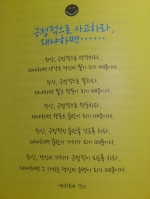 긍정적으로 사고하라,
왜냐하면……
항상, 긍정적으로 생각하라.
왜냐하면 생각은 당신의 말이 되기 때문이다.
항상, 긍정적으로 말하라.
왜냐하면 말은 행동이 되기 때문이다.
항상, 긍정적으로 행동하라.
왜냐하면 행동은 습관이 되기 때문이다.
항상, 긍정적인 습관을 가지도록 하라.
왜냐하면 습관이 가치가 되기 때문이다.
항상, 당신의 가치가 긍정적이 되도록 하라.
왜냐하면 그 가치는 당신의 운명이 되기 때문이다.
-마하트마 간디